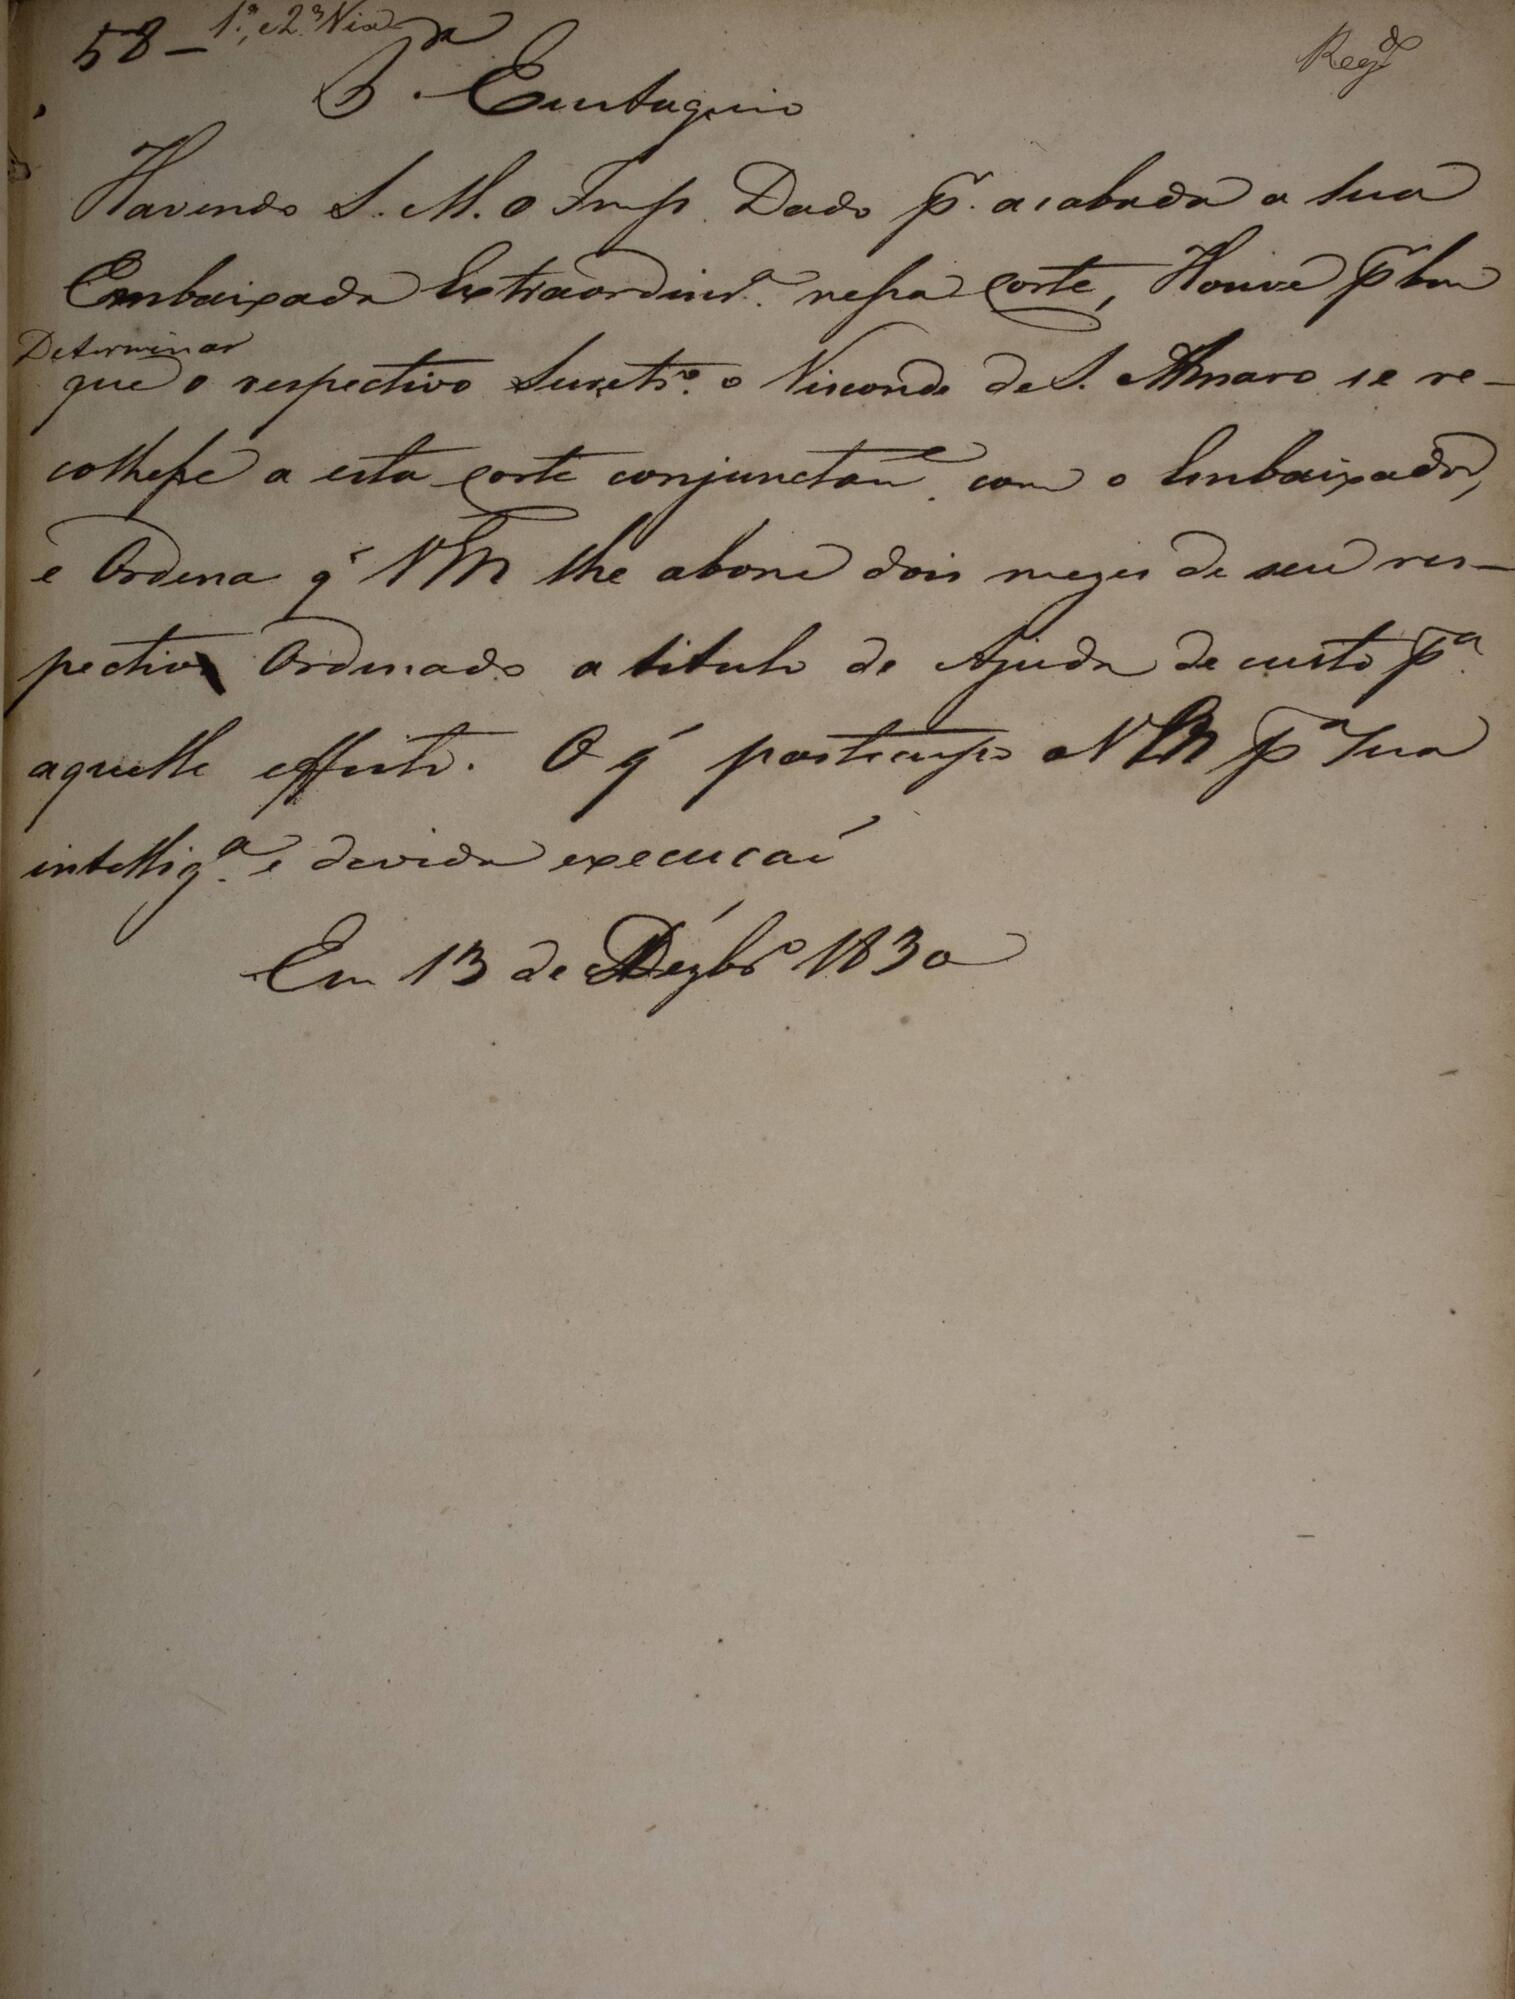 58 - 1.ª e 2.ª Via
Reg.do
P.a Eustaquio
Havendo S. M. o Imp. Dado p.r acabada a sua
Embaixada Extraordinr.a nessa Corte, Houve p.r bem
Determinar
que o respectivo Secretr.o o Visconde de S. Amaro se re-
colhesse a esta Corte conjunctam.e com o Embaixador,
e Ordena q' VM lhe abone dois mezes de seu res-
pectivo Ordenado a titulo de Ajuda de custo p.a
aquelle effeito. O q' participo a VM p.a sua
intellig.a e devida execuçaõ
Em 13 de Dezbr.o 1830